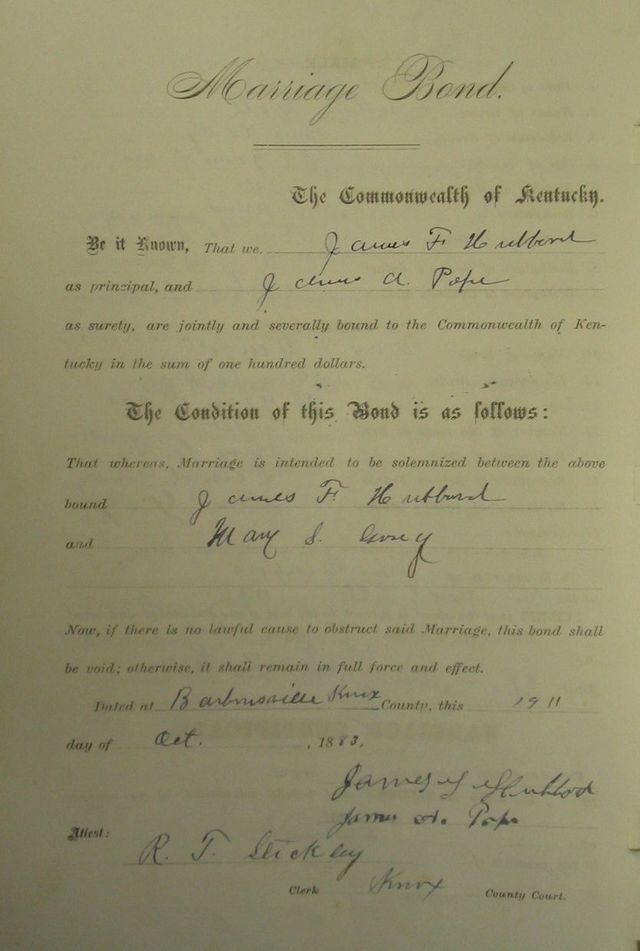 Marriage Bond.
The Commonwealth of Kentucky.
Be it Known, That we, James F Hubbard
as principal, and James A. Pope
as surety, are jointly and severally bound to the Commonwealth of Ken-
tucky in the sum of one hundred dollars.
The Condition of this Bond is as follows:
That whereas, Marriage is intended to be solemnized between the above
bound James F. Hubbard
and Mary S.
Now, if there is no lawful cause to obstruct said Marriage, this bond shall
be void; otherwise, it shall remain in full force and effect.
Dated at Barbourville Knox County, this
day of Oct. , 1883.
James F Hubbard
James A. Pope
Attest:
R. T. Stickley
Clerk Knox County Court.